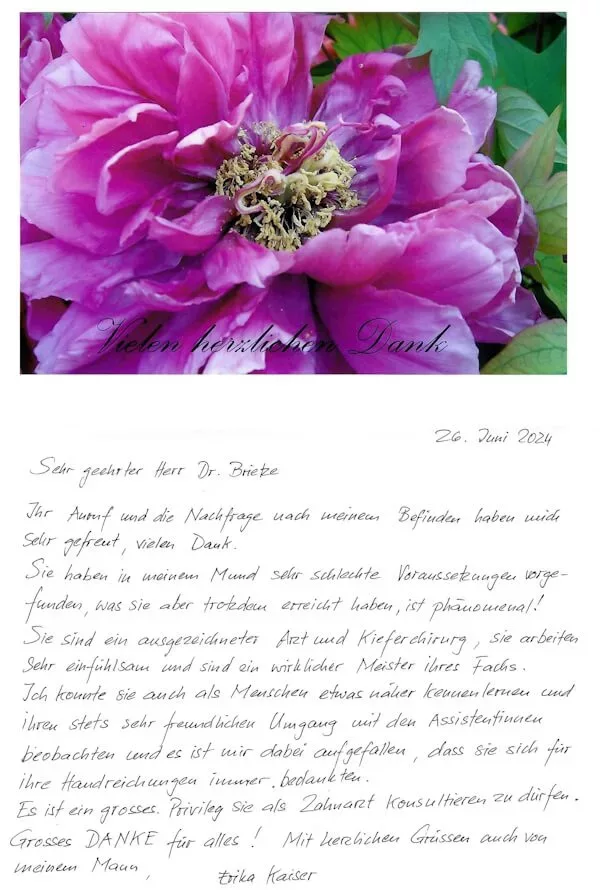 Vielen herzlichen Dank
26. Juni 2024
Sehr geehrter Herr Dr. Brietze
Ihr Anruf und die Nachfrage nach meinem Befinden haben mich
sehr gefreut, vielen Dank.
Sie haben in meinem Mund sehr schlechte Voraussetzungen vorge-
funden, was sie aber trotzdem erreicht haben, ist phänomenal!
Sie sind ein ausgezeichneter Arzt und Kieferchirurg, sie arbeiten
sehr einfühlsam und sind ein wirklicher Meister ihres Fachs.
Ich konnte sie auch als Menschen etwas näher kennenlernen und
ihren stets sehr freundlichen Umgang mit den Assistentinnen
beobachten und es ist mir dabei aufgefallen, dass sie sich für
ihre Handreichungen immer bedankten.
Es ist ein grosses Privileg sie als Zahnarzt konsultieren zu dürfen.
Grosses DANKE für alles! Mit herzlichen Grüssen auch von
meinem Mann,
Erika Kaiser